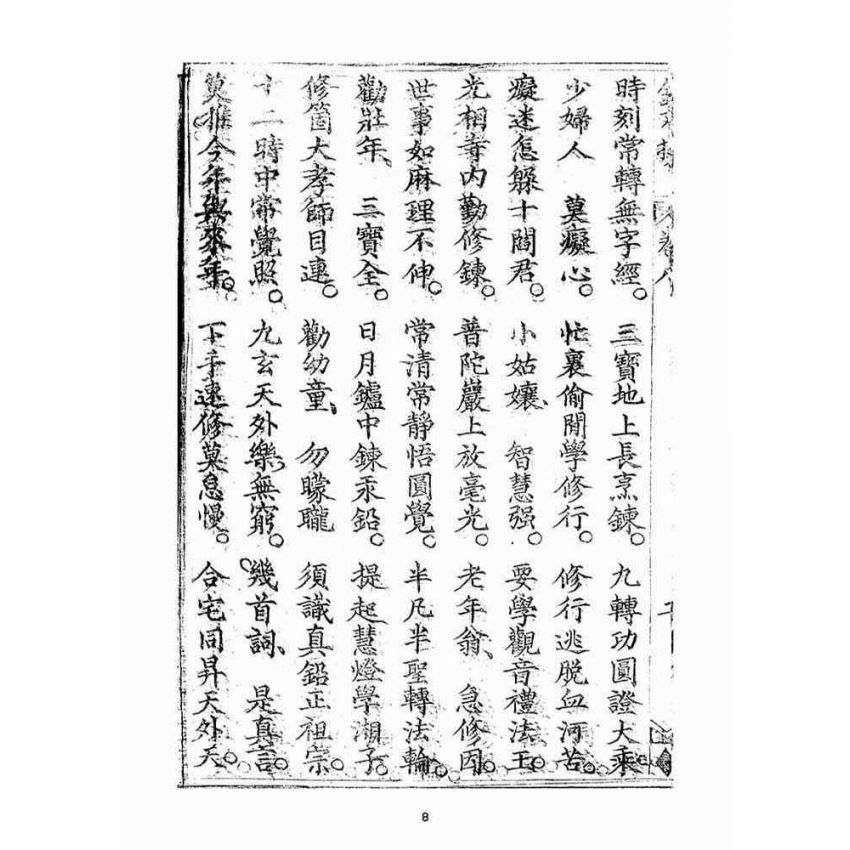 時刻常轉無字經。　三寶地上長烹鍊。　九轉功圓證大乘。
少婦人　莫癡心。　忙裏偷閒學修行。　修行逃脫血河苦。
癡迷怎躲十閻君。　小姑孃、智慧强。　要學觀音禮法王。
光相寺内勤修鍊。　普陀巖上放毫光。　老年翁、急修因。
世事如麻理不伸。　常清常靜悟圓覺。　半凡半聖轉法輪。
勸壯年、三寶全。　日月鑪中鍊汞鉛。　提起慧燈學湘子。
修箇大孝師目連。　勸幼童、勿矇矓　須識真鉛正祖宗。
十二時中常覺照。　九玄天外樂無窮。　幾首詞、是真言。
莫推今年與來年。　下手速修莫怠慢。　合宅同昇天外天。
8